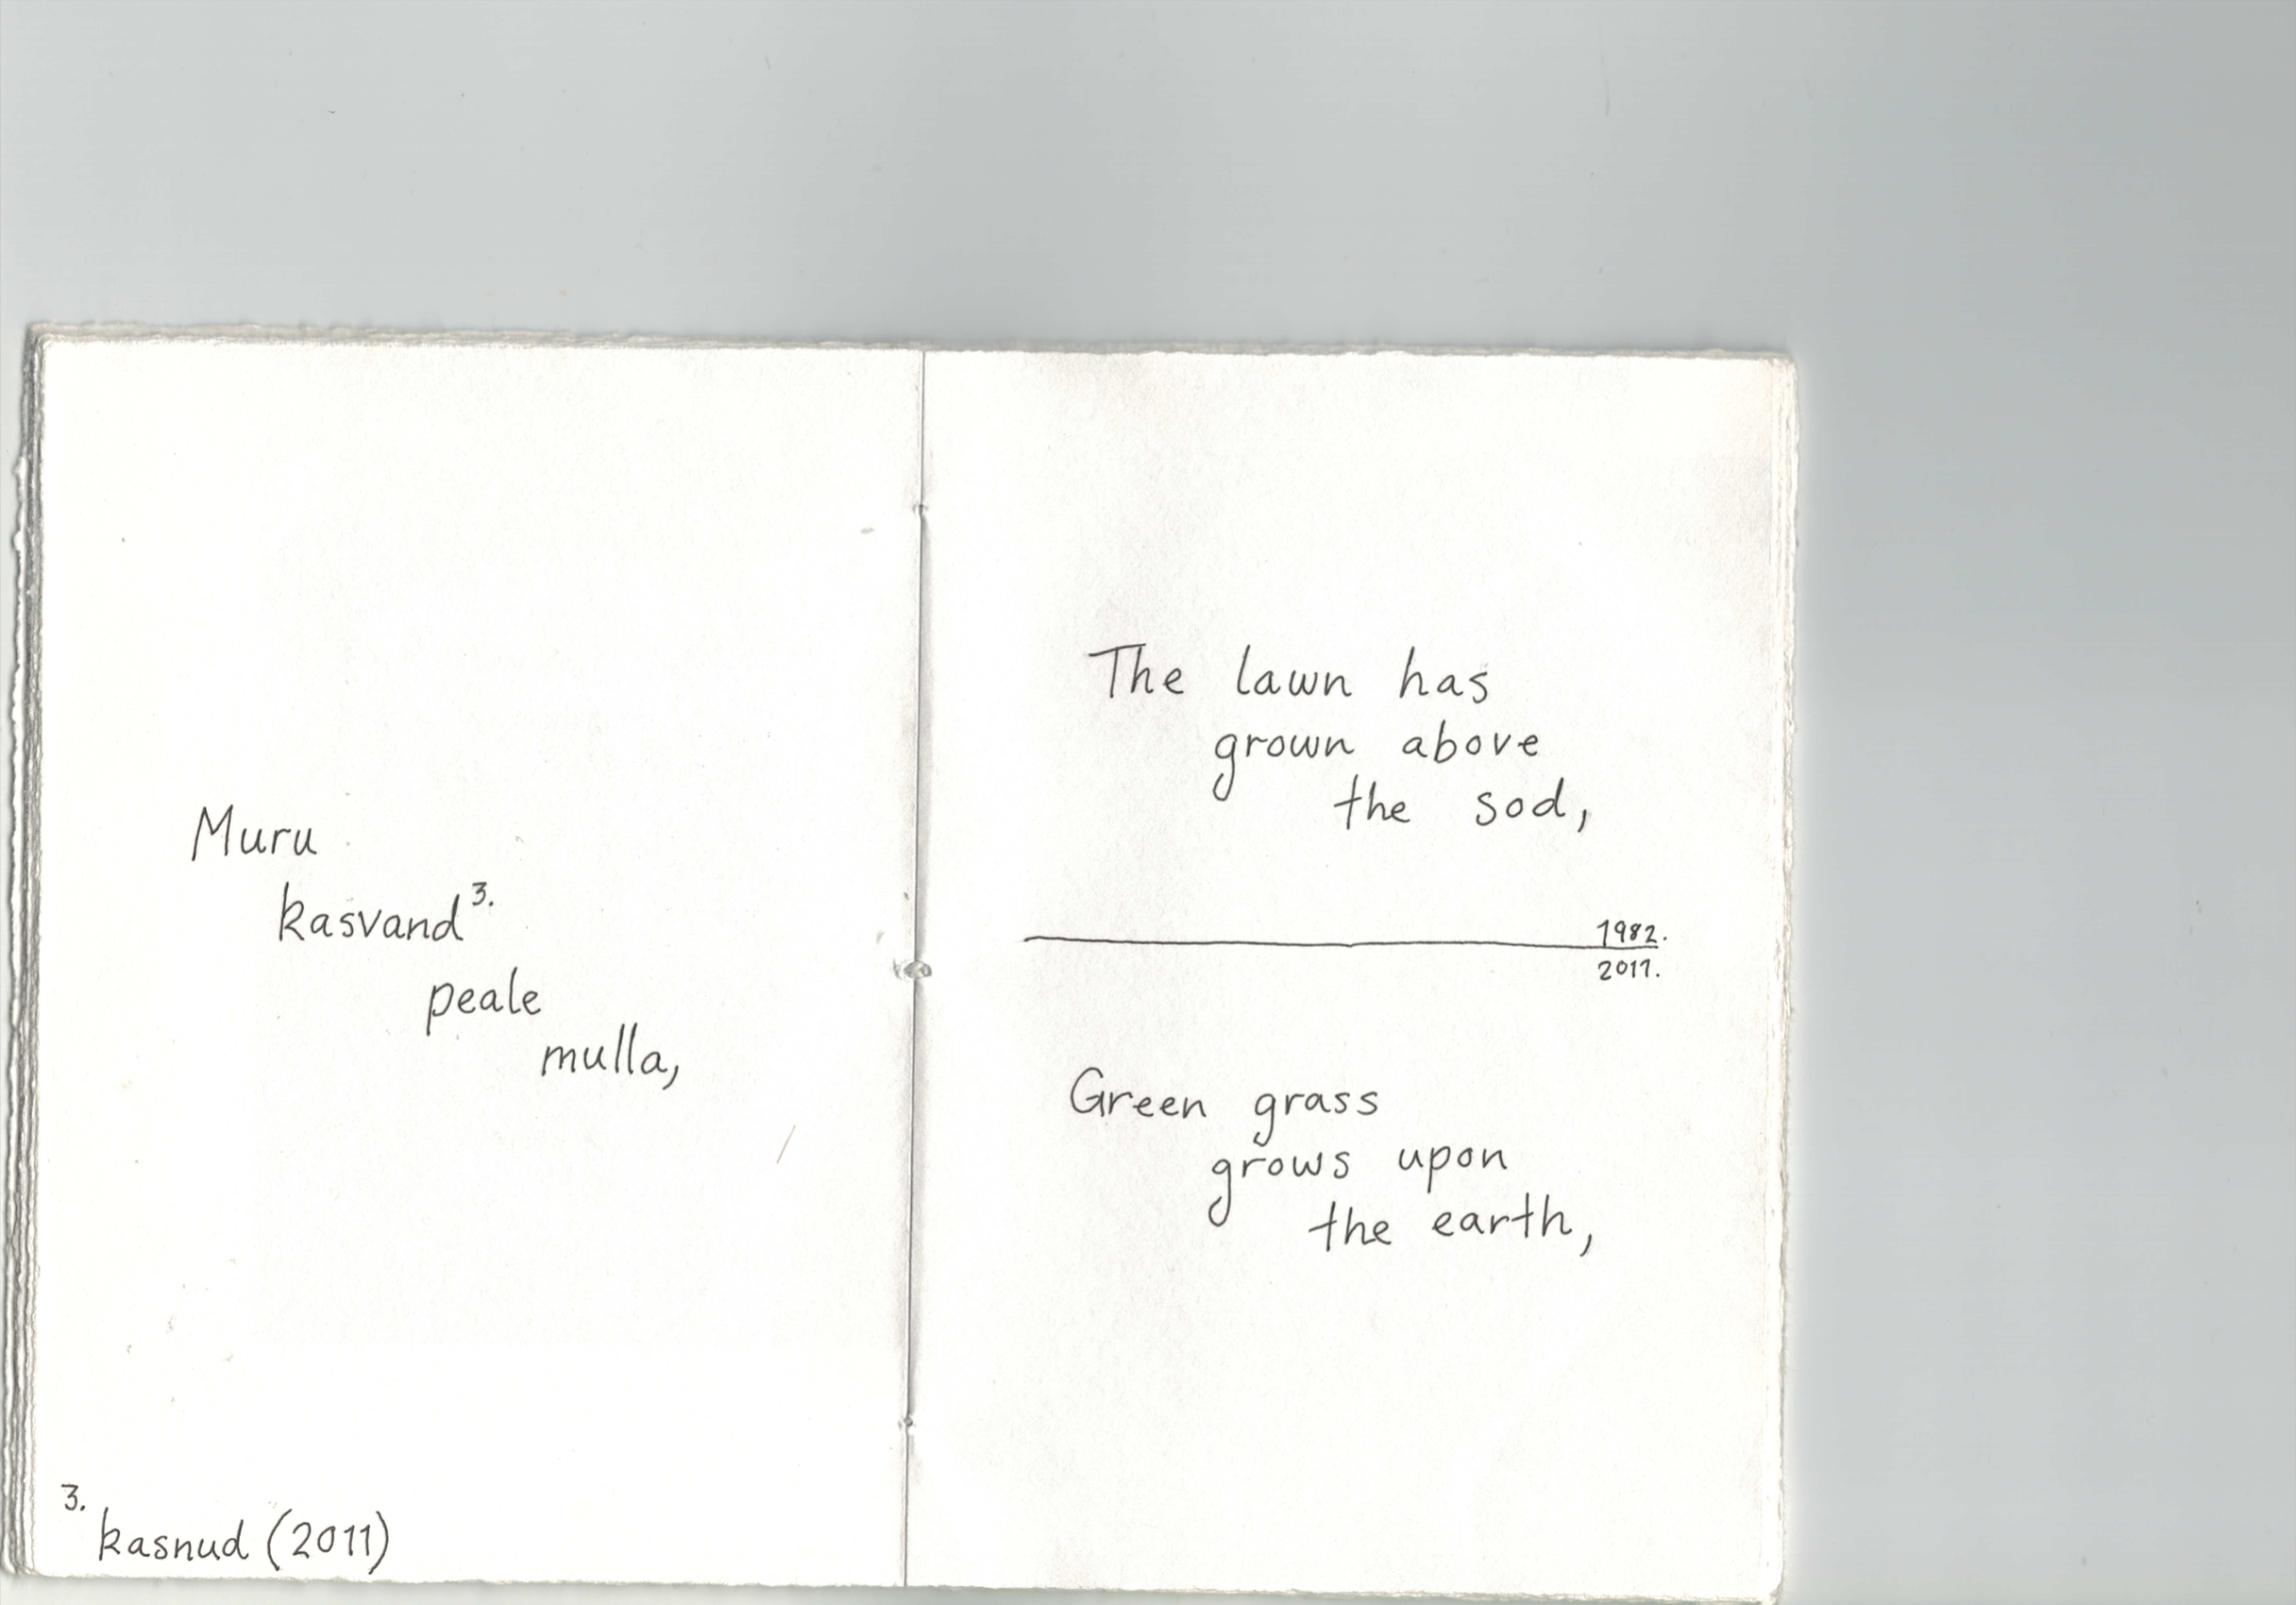 Muru
kasvand³.
peale
mulla,
3.
kasnud (2011)
The lawn has
grown above
the sod,
1982.
2011.
Green grass
grows upon
the earth,